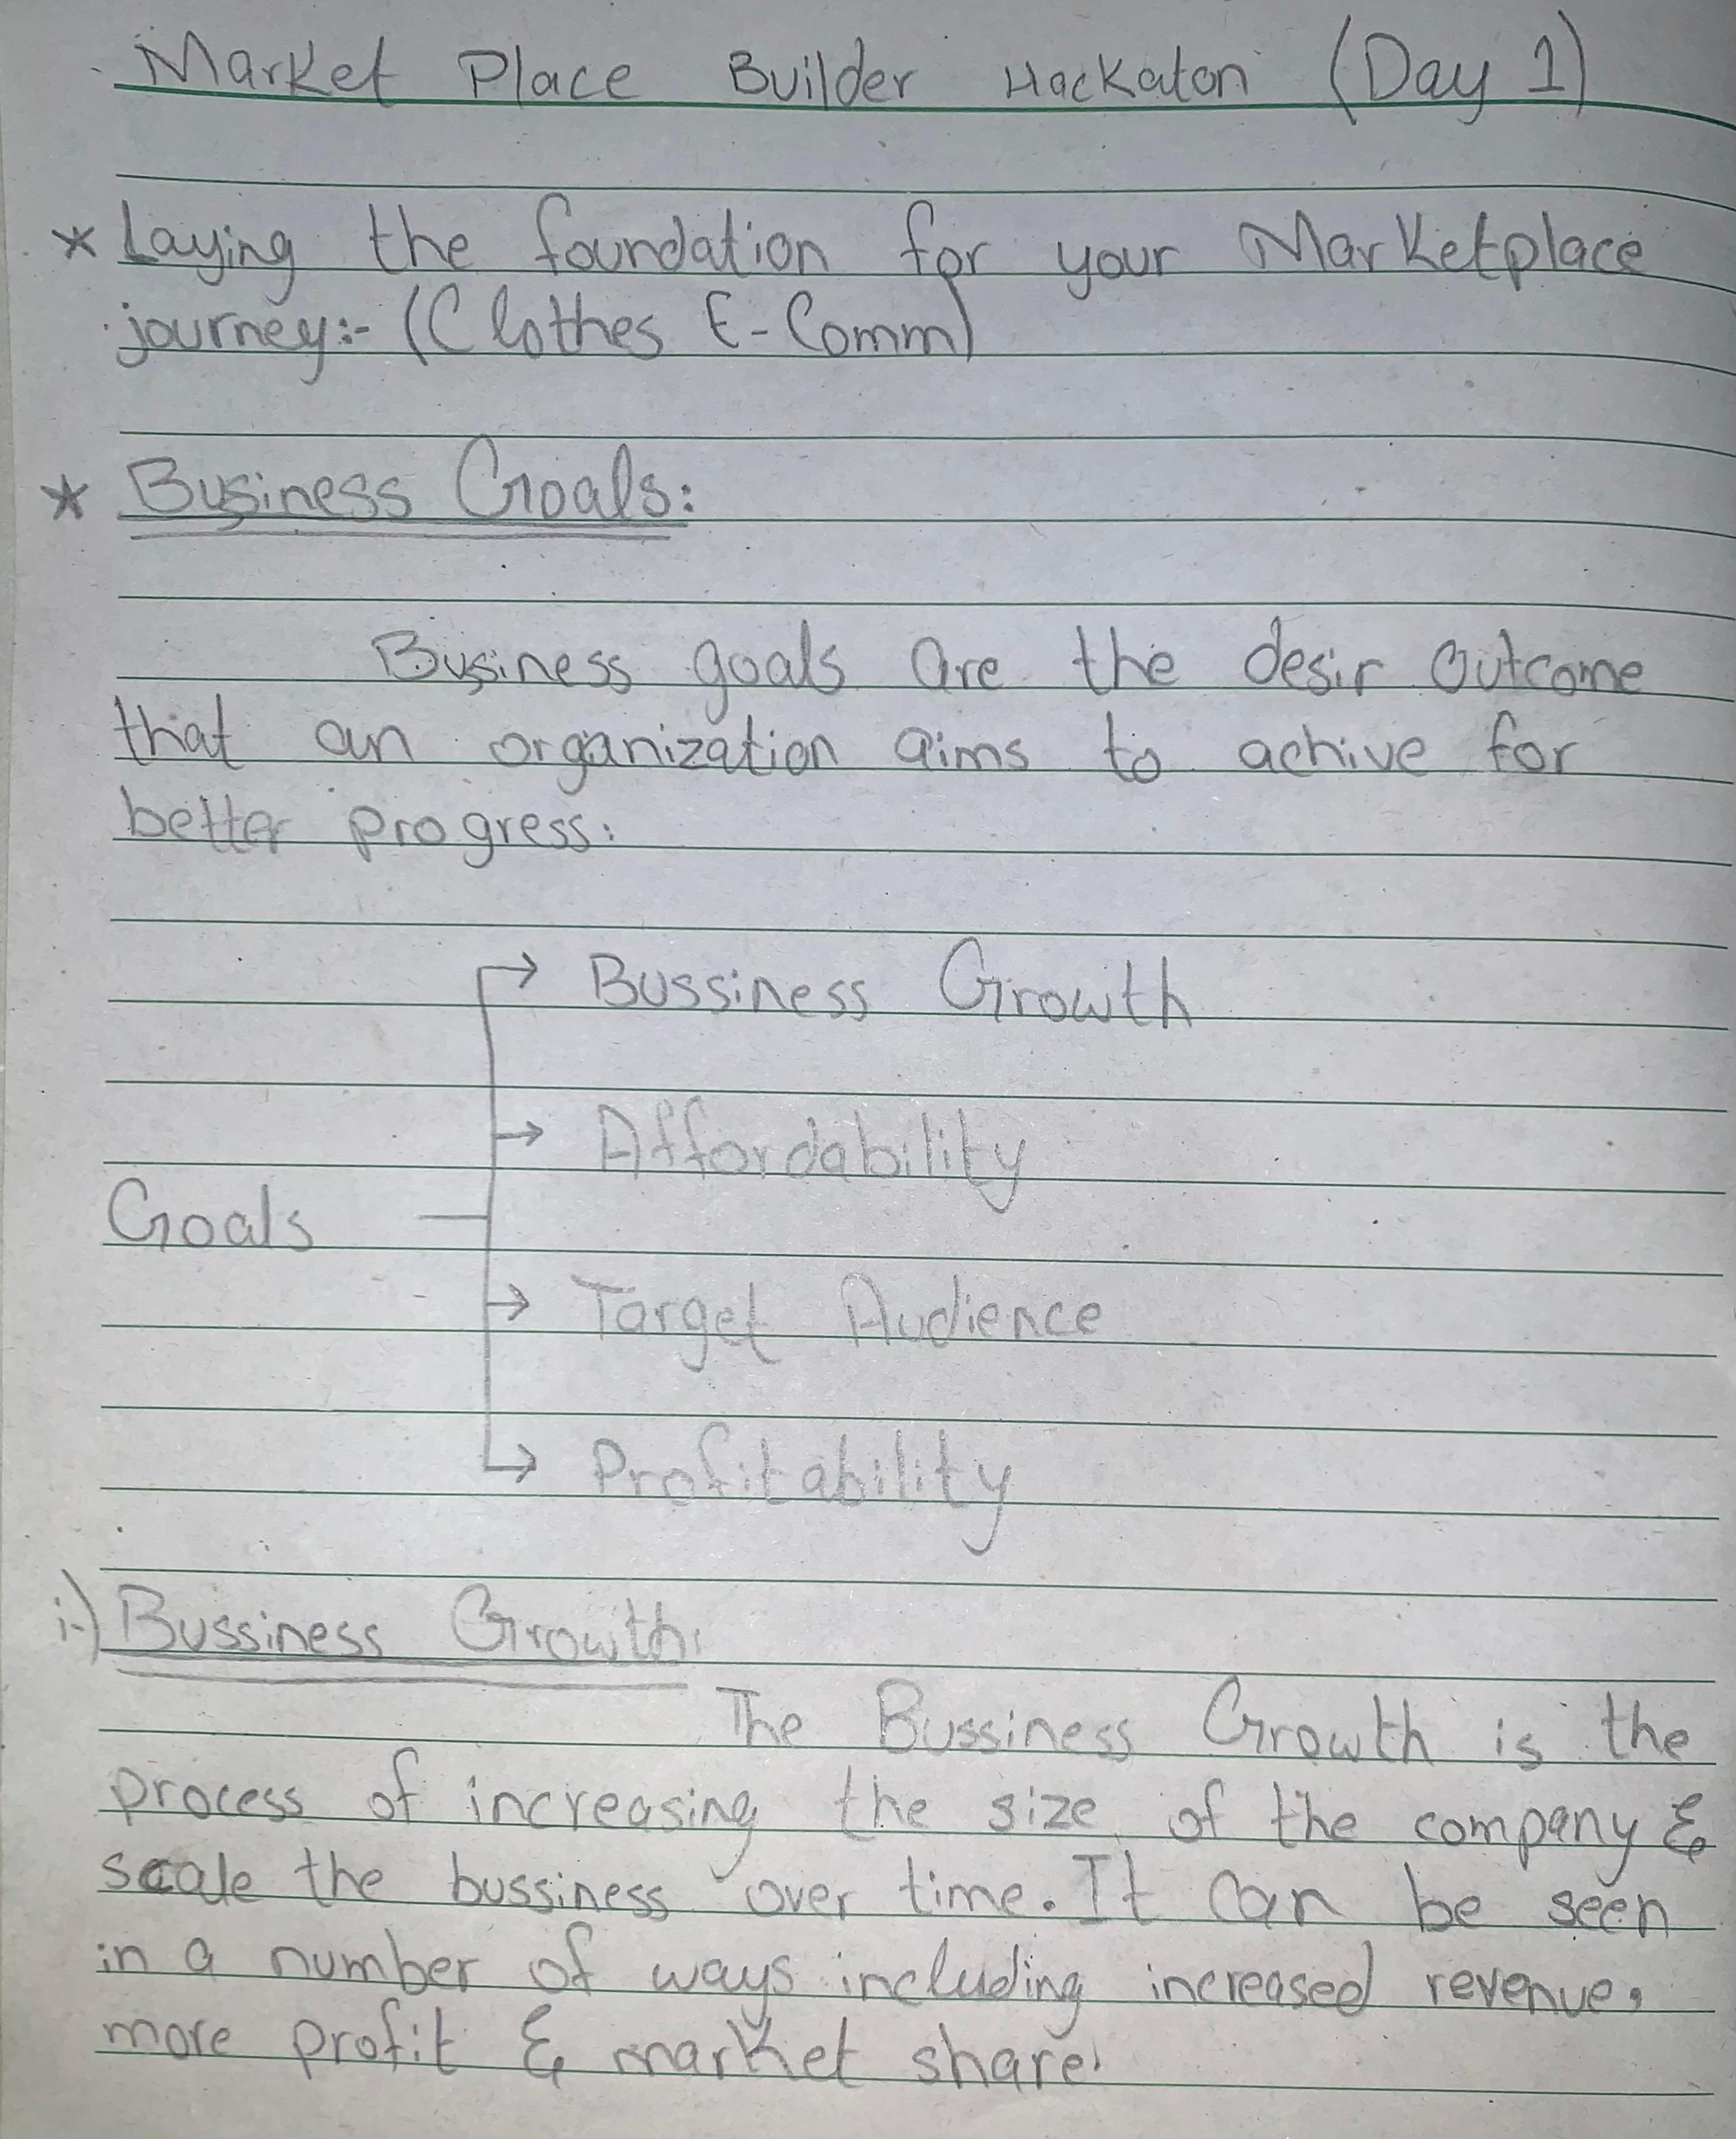 Market Place Builder Hackaton (Day 1)
* Laying the foundation for your Marketplace
journey:- (Clothes E-Comm)
* Business Goals:
Business goals are the desir outcome
that an organization aims to achive for
better progress.
→ Bussiness Growth
→ Affordability
Goals
→ Target Audience
→ Profitability
i-) Bussiness Growth:
The Bussiness Growth is the
process of increasing the size of the company &
scale the bussiness over time. It can be seen
in a number of ways including increased revenue,
more profit & market share.